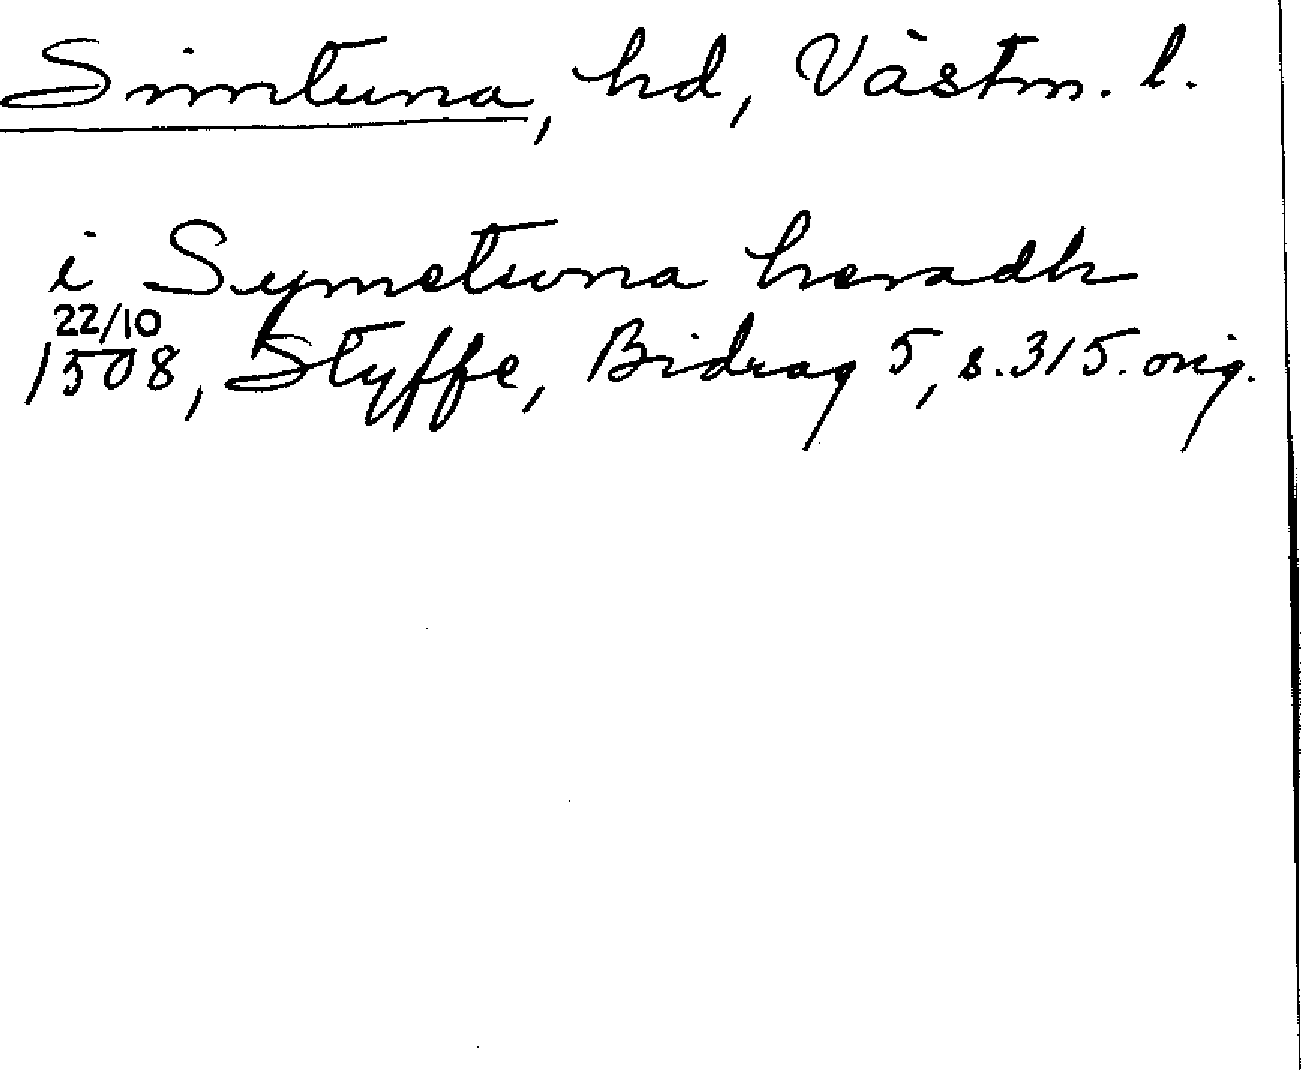 Simtuna, hd, Västm. l.
i Symetuna heradh
22/10
1508, Styffe, Bidrag 5, s. 315. orig.